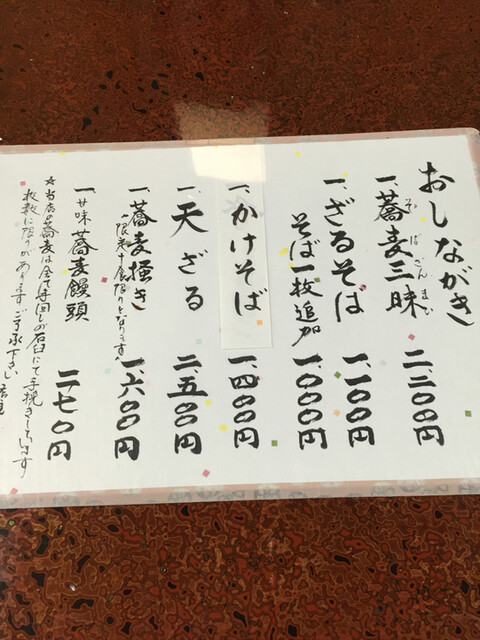 おしながき
一、蕎麦三昧 二、二〇〇円
そばざんまい
一、ざるそば 一、一〇〇円
そば一枚追加 一、〇〇〇円
一、かけそば 一、四〇〇円
一、天ざる 二、五〇〇円
一、蕎麦掻き 一、六〇〇円
(限定十食限りとなります)
一、甘味 蕎麦饅頭 二七〇円
☆当店の蕎麦は全て手回しの石臼にて手挽きしています
枚数に限りがあります ご了承下さい